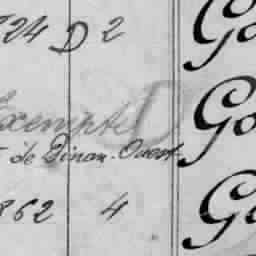 24 D 2 Go
Exempté D Go
de Dinan-Ouest
862 4 Go